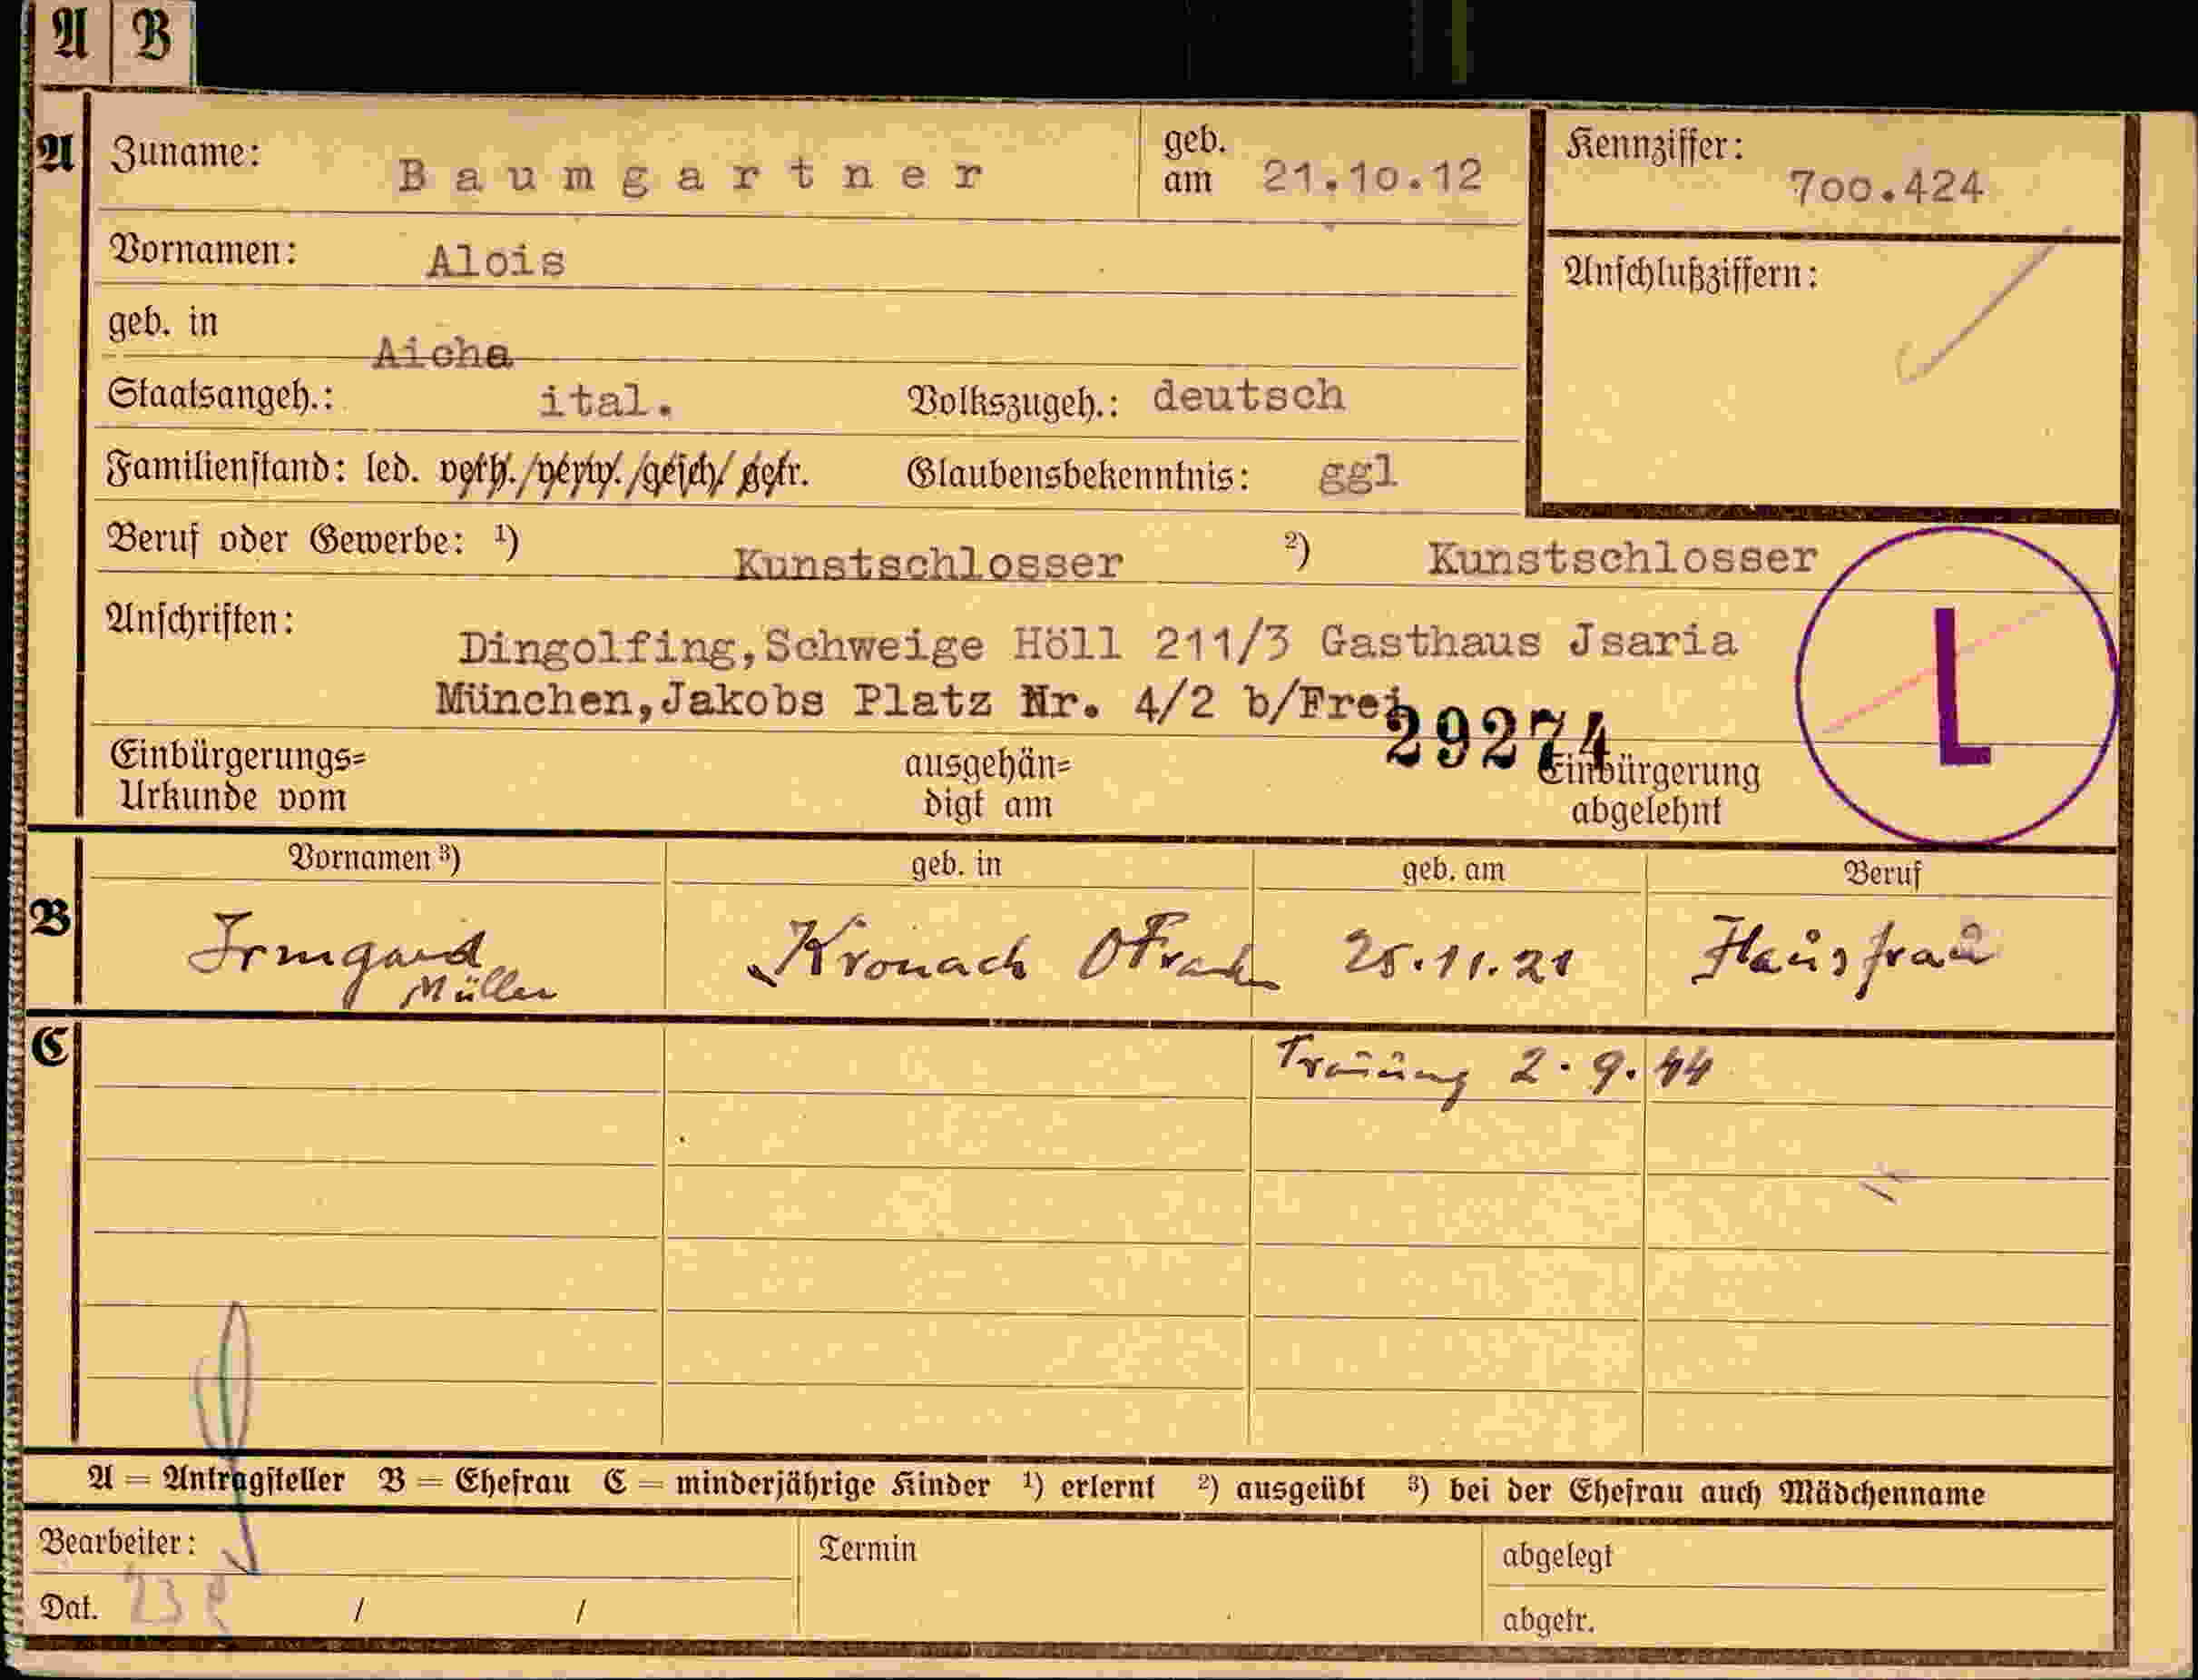 A B
A Zuname: Baumgartner geb. am 21.10.12 Kennziffer: 700.424
Vornamen: Alois Anschlußziffern:
geb. in Aicha
Staatsangeh.: ital. Volkszugeh.: deutsch
Familienstand: led. verh./verw./gesch/ getr. Glaubensbekenntnis: ggl
Beruf oder Gewerbe: ¹) Kunstschlosser ²) Kunstschlosser
Anschriften: Dingolfing,Schweige Höll 211/3 Gasthaus Jsaria
München,Jakobs Platz Nr. 4/2 b/Frei
L
29274
Einbürgerungs= ausgehän= Einbürgerung
Urkunde vom digt am abgelehnt
Vornamen ³) geb. in geb. am Beruf
B Irmgard Kronach OFrank 25.11.21 Hausfrau
Müller
C Trauung 2.9.44
A = Antragsteller B = Ehefrau C = minderjährige Kinder ¹) erlernt ²) ausgeübt ³) bei der Ehefrau auch Mädchenname
Bearbeiter: Termin abgelegt
Dat. / / abgetr.